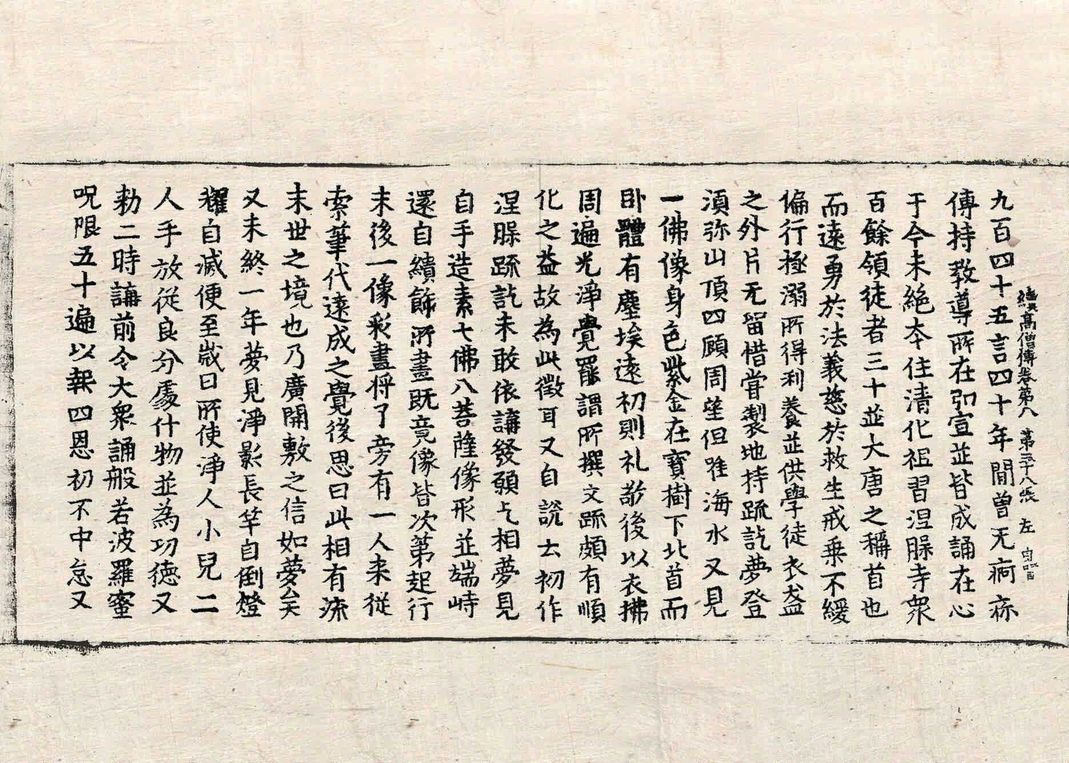 續高僧傳卷第八 第三十八張 左
九百四十五言四十年間曾无痾疹
傳持教導所在弘宣並皆成誦在心
于今未絕本住清化祖習涅槃寺衆
百餘領徒者三十並大唐之稱首也
而遠勇於法義慈於救生戒乘不緩
偏行拯溺所得利養並供學徒衣盋
之外片无留惜嘗製地持䟽訖夢登
湏弥山頂四顧周望但唯海水又見
一佛像身色紫金在寶樹下北首而
卧體有塵埃遠初則礼敬後以衣拂
周遍光淨覺罷謂所撰文䟽頗有順
化之益故為此徵耳又自說云初作
涅槃䟽訖未敢依講發願乞相夢見
自手造素七佛八菩薩像形並端峙
還自繢飾所畫既竟像皆次第起行
末後一像彩畫將了旁有一人来從
索筆代遠成之覺後思曰此相有流
末世之境也乃廣開敷之信如夢矣
又未終一年夢見淨影長竿自倒燈
耀自滅便至歲日所使淨人小兒二
人手放從良分處什物並為功德又
勑二時講前令大衆誦般若波羅蜜
呪限五十遍以報四恩初不中怠又